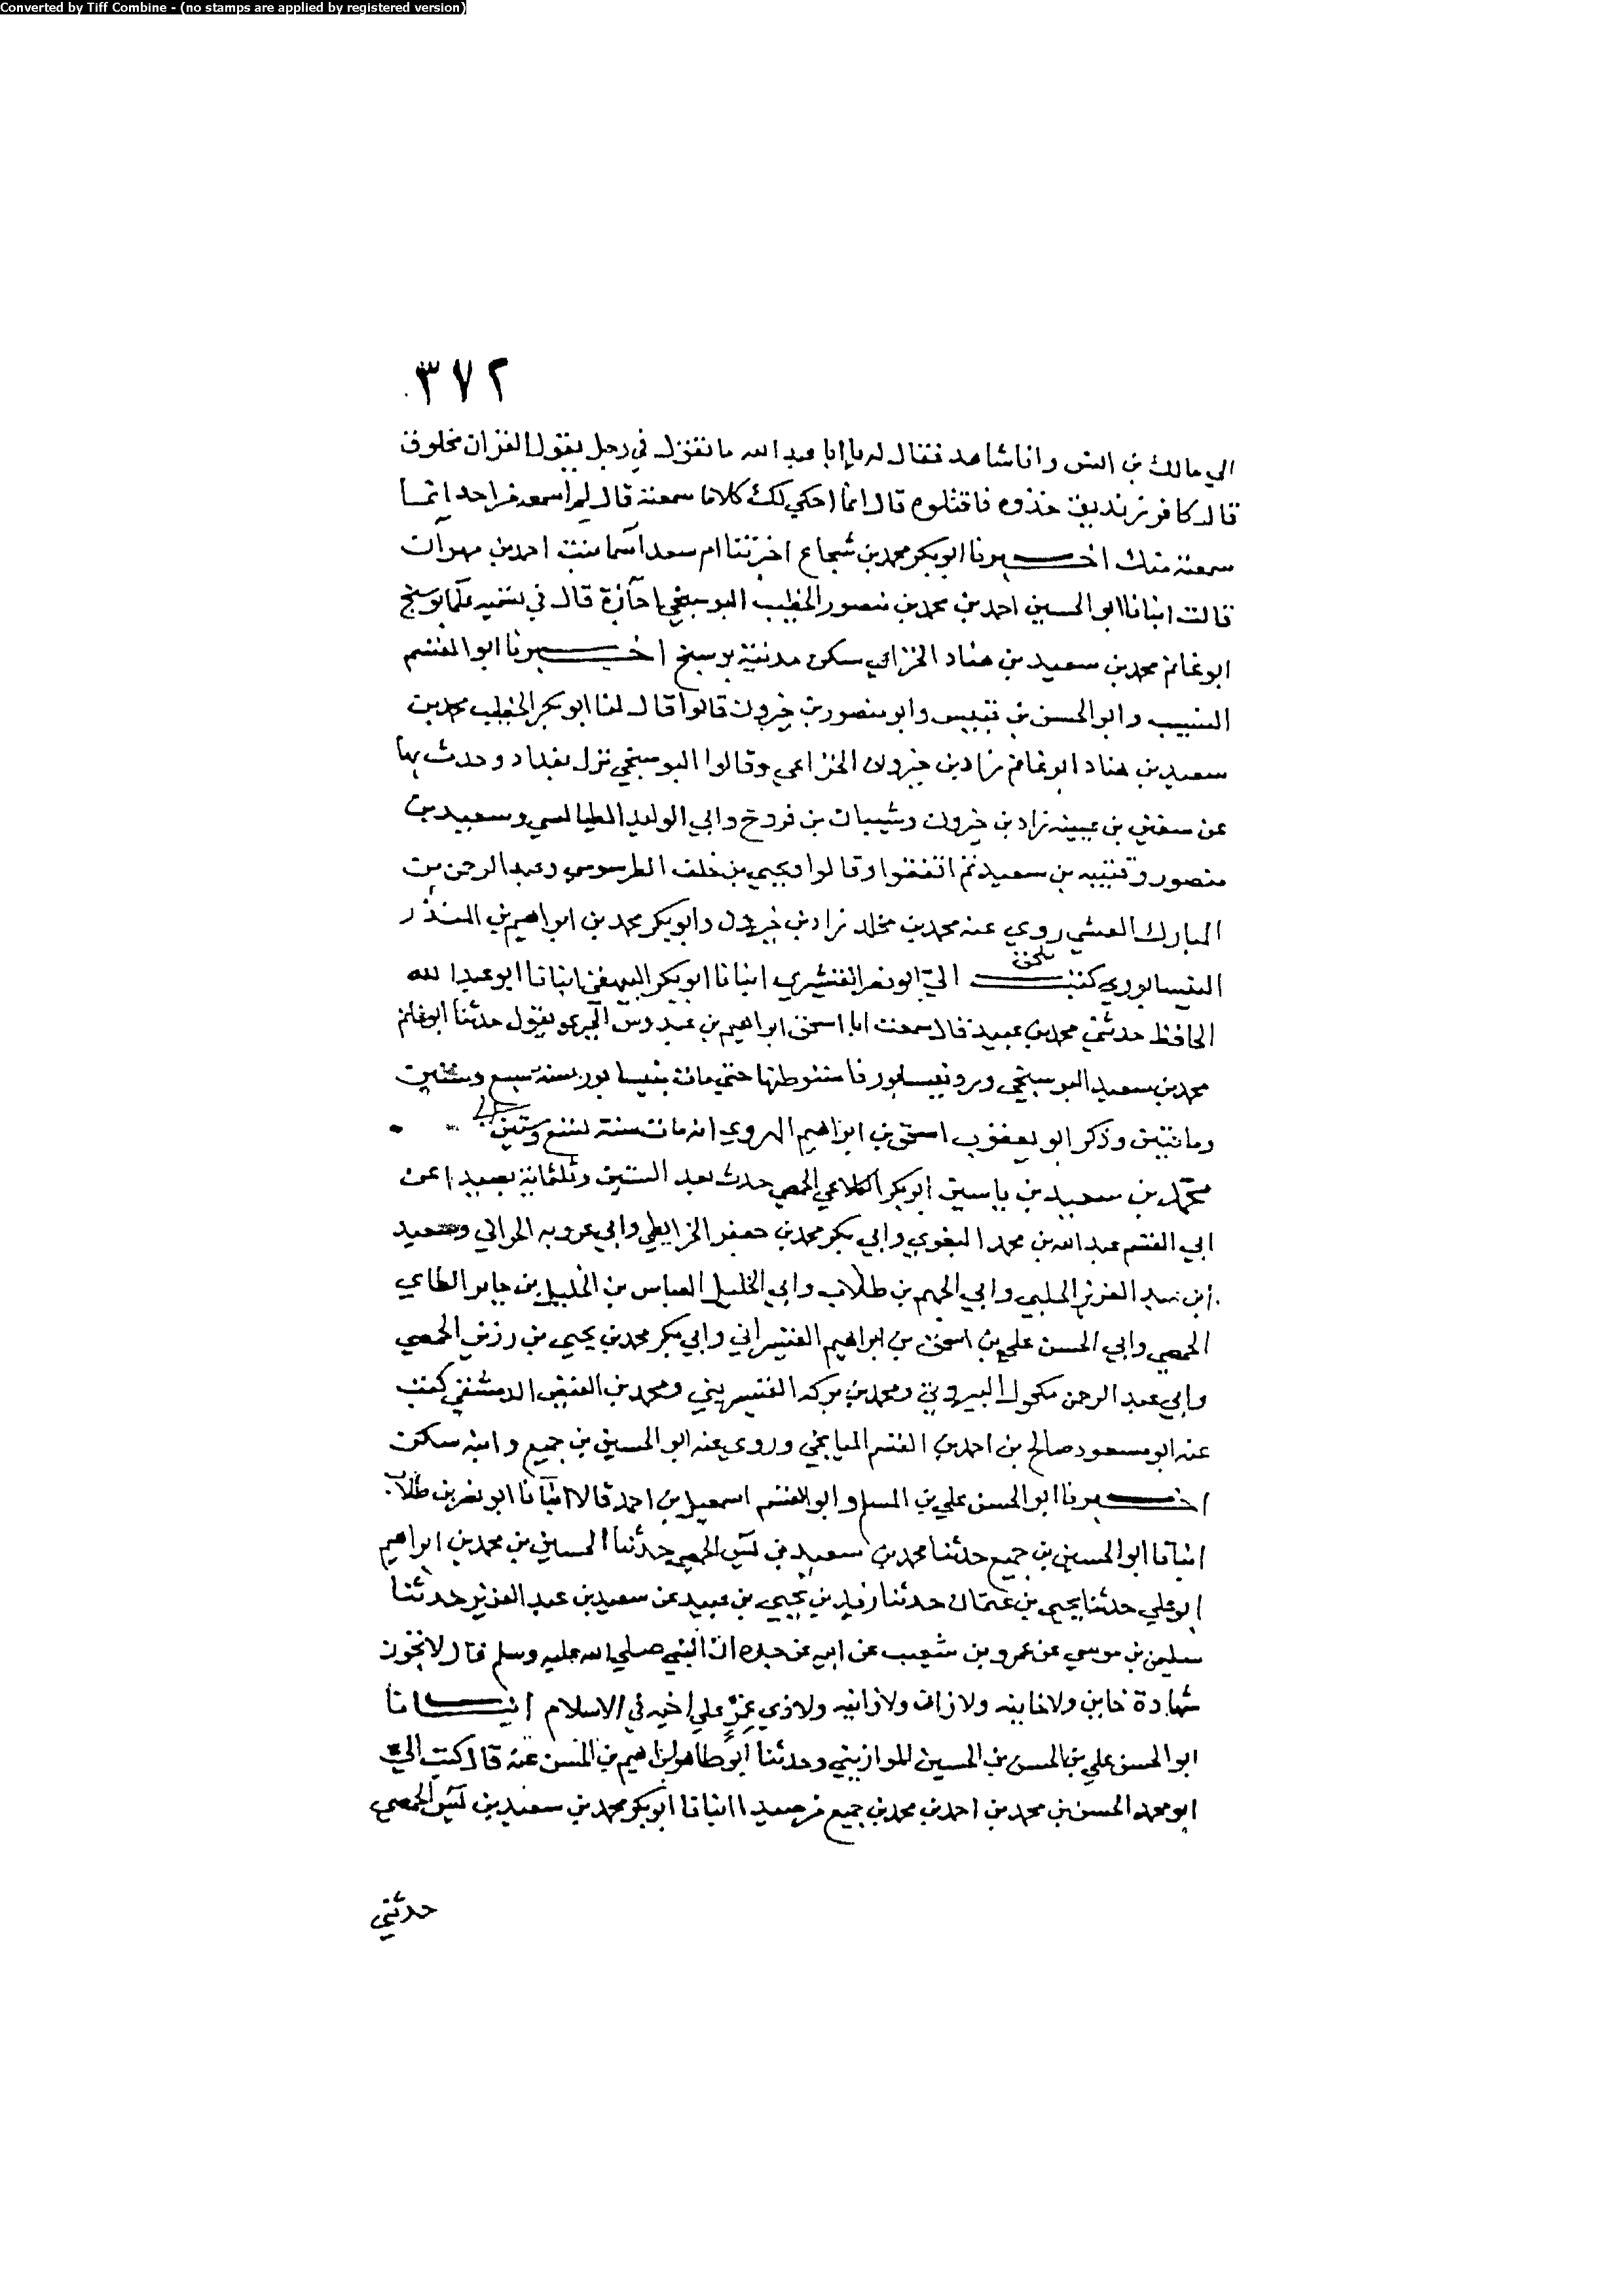 Converted by Tiff Combine - (no stamps are applied by registered version)
٣٧٢
الي مالك بن انس وانا شاهد فقال له يا ابا عبد الله ما تقول في رجل يقول القران مخلوق
قال كافر زنديق خذوه فاقتلوه قال انما احكي لك كلاما سمعته قال لم اسمعه من احد انما
سمعته منك اخبرنا ابو بكر محمد بن شجاع اخبرتنا ام سعد اسما بنت احمد بن مهران
قالت انبانا ابو الحسين احمد بن محمد بن منصور الخطيب البوسنجي اجازة قال في تسميه علما بوسنج
ابو غانم محمد بن سعيد بن هناد الخزاعي سكن مدينة بوسنج اخبرنا ابو القسم
النسيب وابو الحسن بن قبيس وابو منصور بن خيرون قالوا قال لنا ابو بكر الخطيب محمد بن
سعيد بن هناد ابو غانم زاد بن خيرون الخزاعي وقالوا البوسنجي نزل بغداد وحدث بها
عن سفين بن عيينه زاد بن خيرون وشيبان بن فروخ وابي الوليد الطيالسي وسعيد بن
منصور وقتيبه بن سعيد ثم اتفقوا وقالوا ويحيي بن خلف الطرسوسي وعبد الرحمن بن
المبارك العيشي روي عنه محمد بن مخلد زاد بن خيرون وابو بكر محمد بن ابراهيم بن المنذر
النيسابوري كتب الي ابو نصر القشيري انبانا ابو بكر البيهقي انبانا ابو عبد الله
الحافظ حدثني محمد بن عبيد قال سمعت ابا اسحق ابراهيم بن عبدوس الحيري يقول حدثنا ابو غانم
محمد بن سعيد البوسنجي ورد نيسابور فاستوطنها حتي مات بنيسابور سنة سبع وستين
وماتتين وذكر ابو يعقوب اسحق بن ابراهيم الهروي انه مات سنة تسع وستين
محمد بن سعيد بن ياسين ابو بكر الكلاعي الحمصي حدث بعد الستين وثلثماية بصيدا عن
ابي القسم عبد الله بن محمد البغوي وابي بكر محمد بن جعفر الخرايطي وابي عروبه الحراني وسعيد
ابن عبد العزيز الحلبي وابي الجهم بن طلاب وابي الخليل العباس بن الخليل بن جابر الطاي
الحمصي وابي الحسن علي بن اسحق بن ابراهيم القيسراني وابي بكر محمد بن يحيي بن رزين الحمصي
وابي عبد الرحمن مكحول البيروتي ومحمد بن بركه القنسريني ومحمد بن الفيض الدمشقي كتب
عنه ابو مسعود صالح بن احمد بن القسم الميانجي وروي عنه ابو الحسين بن جميع وابنه سكن
اخبرنا ابو الحسن علي بن المسلم وابو القسم اسمعيل بن احمد قالا انبانا ابو نصر بن طلاب
انبانا ابو الحسين بن جميع حدثنا محمد بن سعيد بن يس الحمصي حدثنا الحسين بن محمد بن ابراهيم
ابو علي حدثنا يحيي بن عثمان حدثنا زيد بن يحيي بن عبيد عن سعيد بن عبد العزيز حدثنا
سليمن بن موسي عن عمرو بن شعيب عن ابيه عن جده ان النبي صلي الله عليه وسلم قال لا تجوز
شهادة خاين ولا خاينه ولا زان ولا زانيه ولا ذي غمر علي اخيه في الاسلام انبانا
ابو الحسن علي بن الحسن بن الحسين الموازيني وحدثنا ابو طاهر ابراهيم بن الحسن عنه قال كتب الي
ابو محمد الحسن بن محمد بن احمد بن محمد بن جميع من صيدا انبانا ابو بكر محمد بن سعيد بن يس الحمصي
حدثني